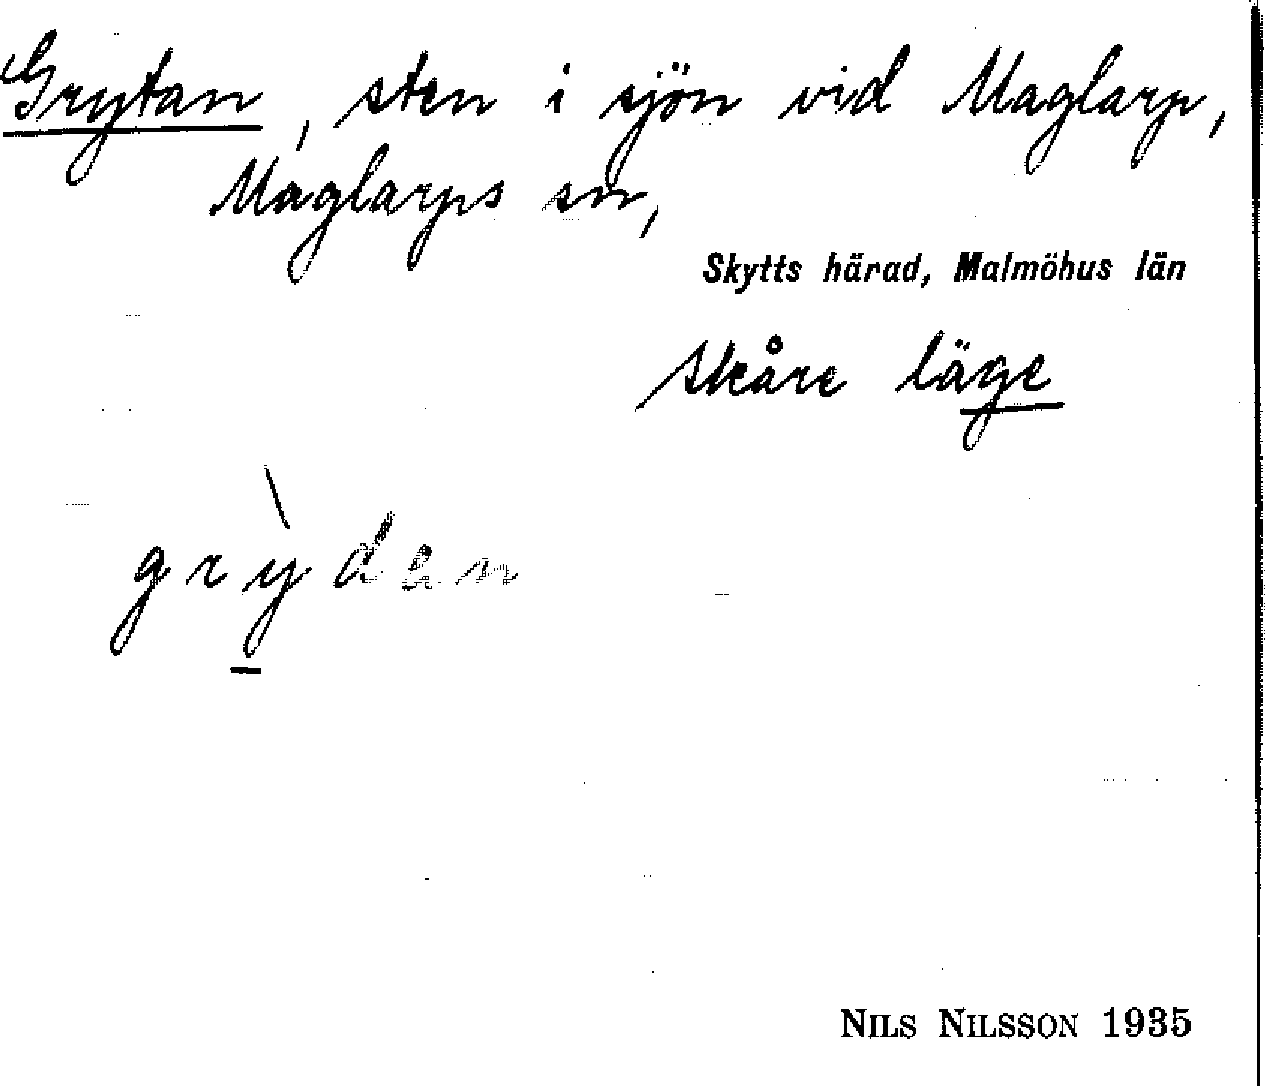 Grytan, sten i sjön vid Maglarp,
Maglarps sn,
Skytts härad, Malmöhus län
Skåre läge
grỳden
NILS NILSSON 1935